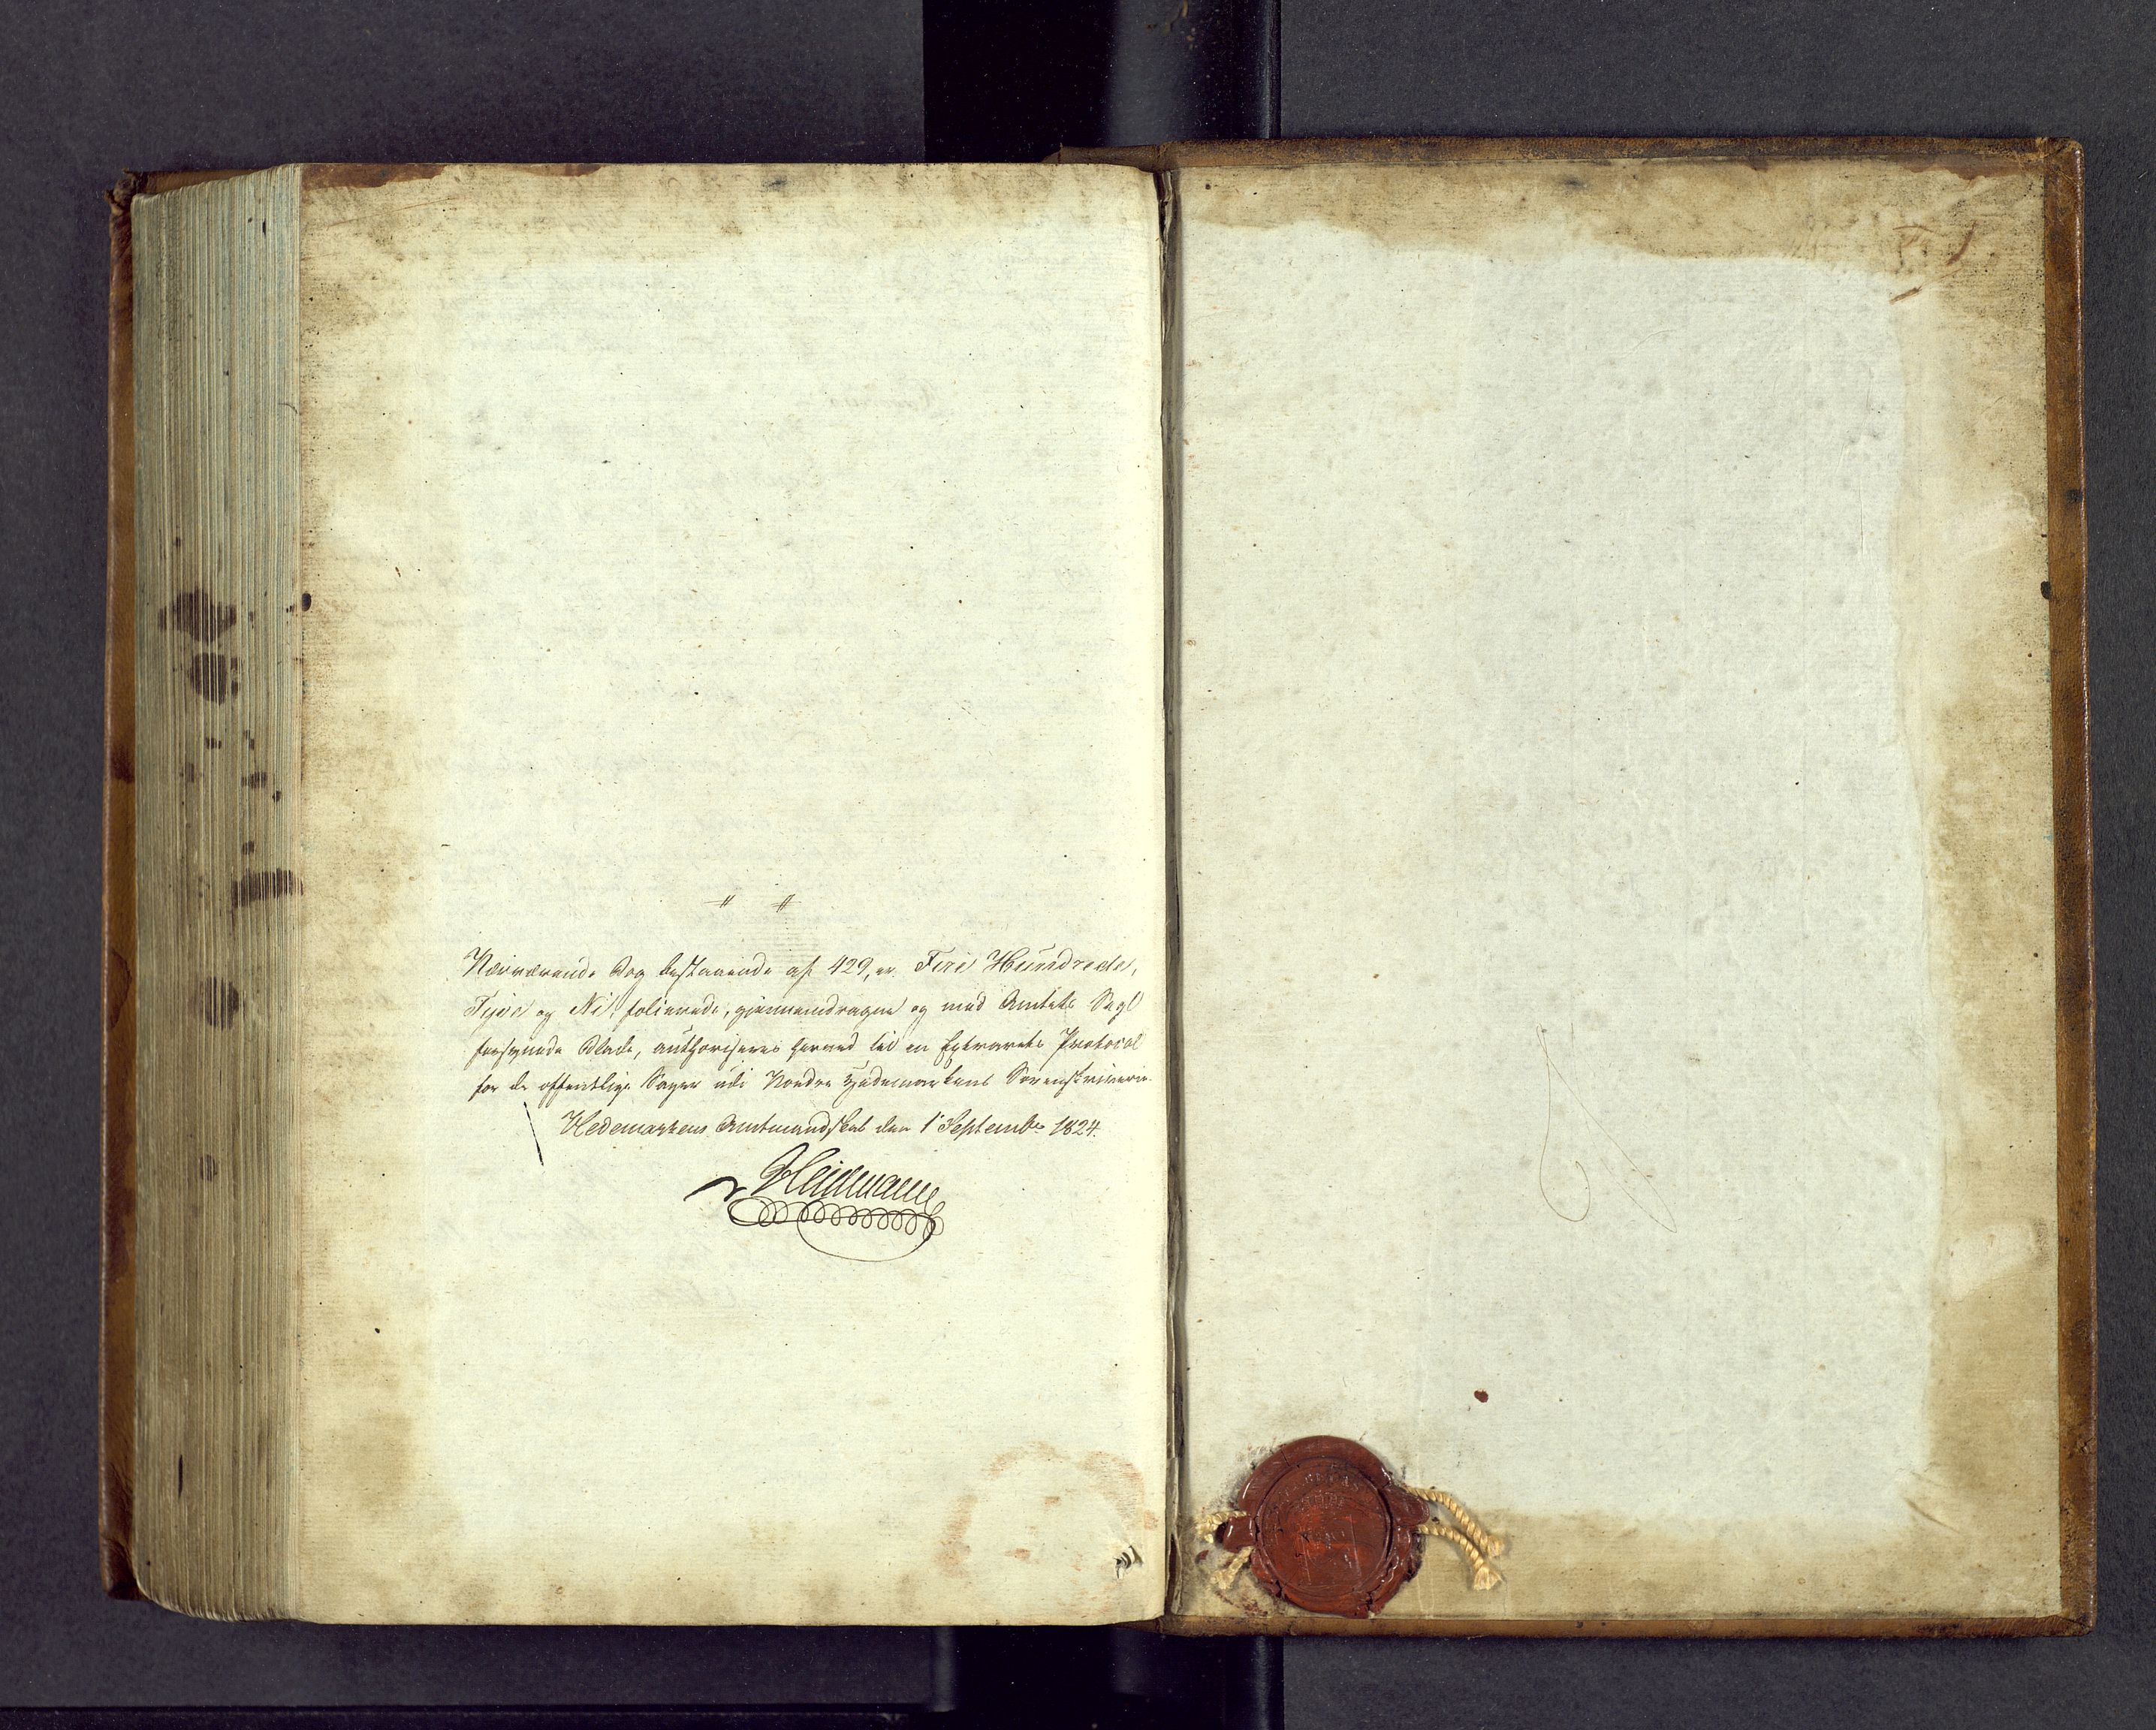 Nærværende Bog bestaaende af 429, er. Fire Hundrede,
Tyve og Ni, folierede, gjennemdragne og med Amtets Segl
forsynede Blade, authoriseres herved til en Extrarets Protocol
for de offentlige Sager udi Nordre Hedemarkens Sorenskriverie.
Hedemarkens Amtmandskab den 1 Septembr 1824.
Heidmann